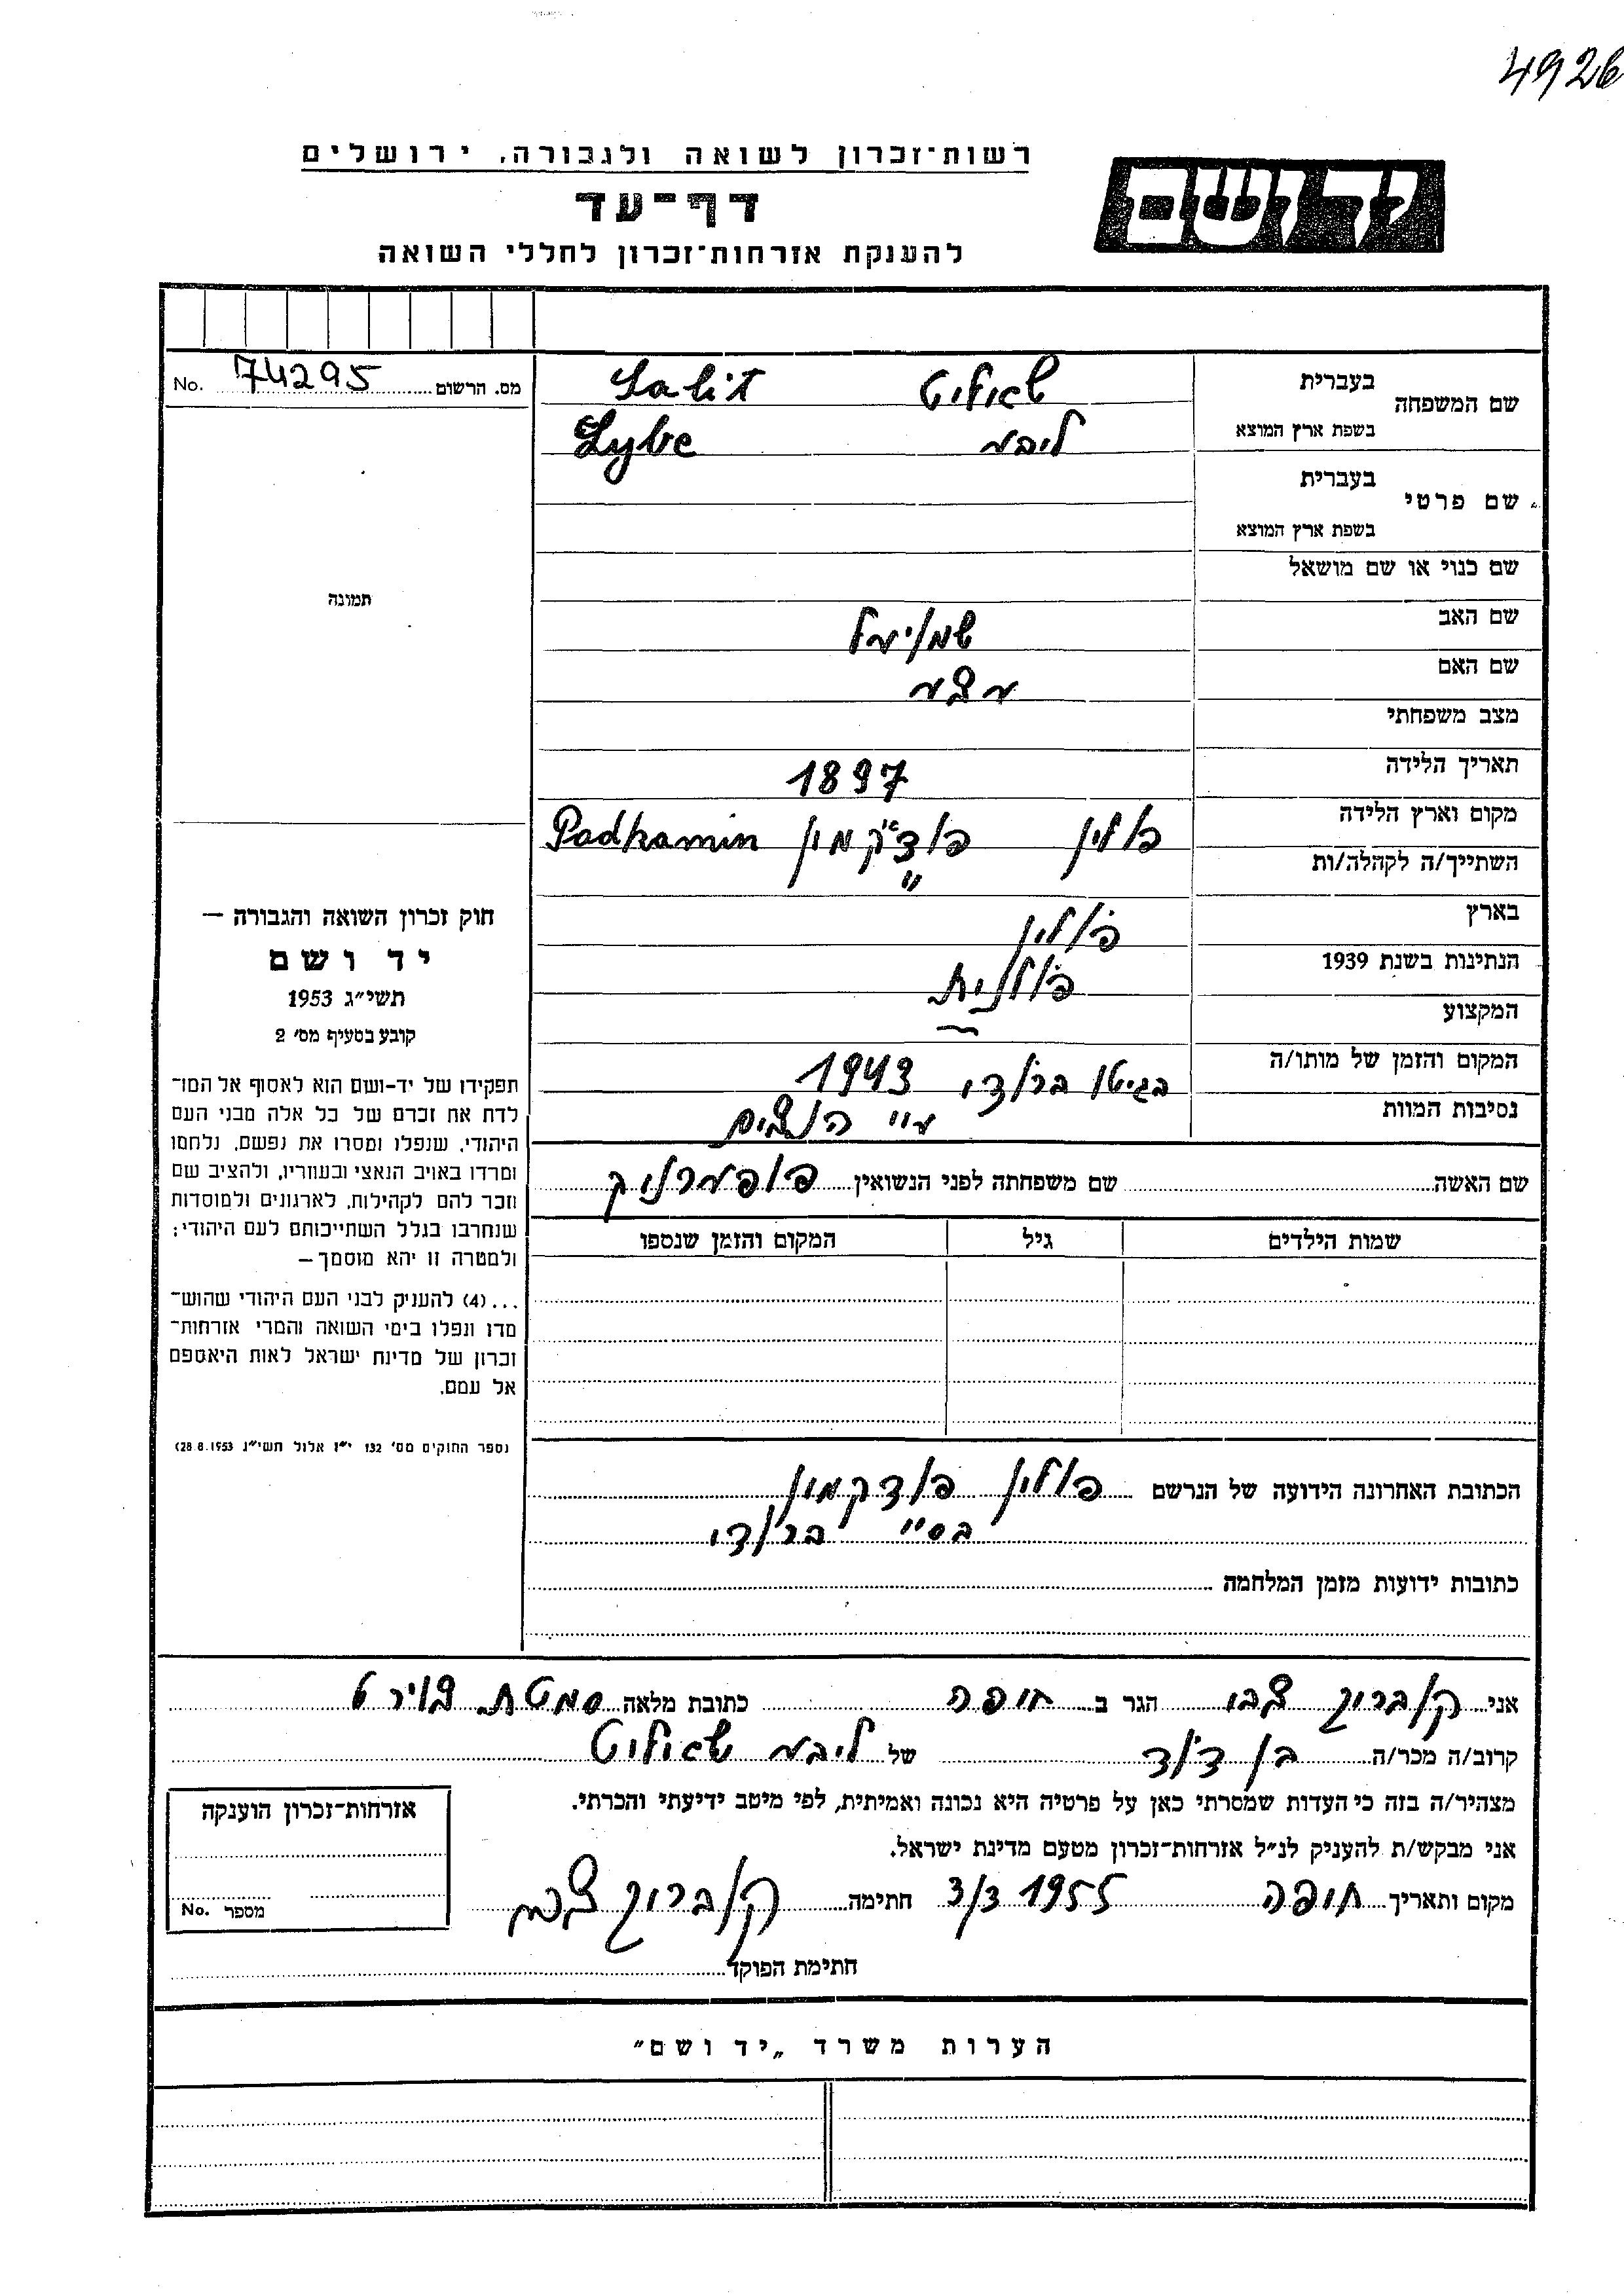 4926
רשות־זכרון לשואה ולגבורה, ירושלים
יד ושם
דף־עד
להענקת אזרחות־זכרון לחללי השואה
מס. הרשום 74295 No.
שם המשפחה
בעברית
בשפת ארץ המוצא
Salit
ליבע Lybe
שם פרטי
בעברית
בשפת ארץ המוצא
שם כנוי או שם מושאל
שם האב
שם האם
מצב משפחתי
תאריך הלידה 1897
מקום וארץ הלידה פולין Padkamin
השתייך/ה לקהלה/ות "
בארץ פולין
הנתינות בשנת 1939 פולנית
המקצוע
המקום והזמן של מותו/ה בגיטו ברודי 1943
נסיבות המוות ע״י הנצים
תמונה
חוק זכרון השואה והגבורה —
יד ושם
תשי״ג 1953
קובע בסעיף מס׳ 2
תפקידו של יד-ושם הוא לאסוף אל המו־
לדת את זכרם של כל אלה מבני העם
היהודי, שנפלו ומסרו את נפשם, נלחמו
ומרדו באויב הנאצי ובעוזריו, ולהציב שם
וזכר להם לקהילות, לארגונים ולמוסדות
שנחרבו בגלל השתייכותם לעם היהודי;
ולמטרה זו יהא מוסמך —
...(4) להעניק לבני העם היהודי שהוש־
מדו ונפלו בימי השואה והמרי אזרחות־
זכרון של מדינת ישראל לאות היאספם
אל עמם.
(ספר החוקים מס׳ 132 י״ז אלול תשי״ג 28.8.1953)
שם האשה שם משפחתה לפני הנשואין
שמות הילדים גיל המקום והזמן שנספו
הכתובת האחרונה הידועה של הנרשם פולין פודקמין
ברודי
כתובות ידועות מזמן המלחמה
אני הגר ב חיפה כתובת מלאה
קרוב/ה מכר/ה בן דוד של ליבע
מצהיר/ה בזה כי העדות שמסרתי כאן על פרטיה היא נכונה ואמיתית, לפי מיטב ידיעתי והכרתי.
אני מבקש/ת להעניק לנ״ל אזרחות־זכרון מטעם מדינת ישראל.
מקום ותאריך חיפה 3/3 1955 חתימה
חתימת הפוקד
אזרחות־זכרון הוענקה
מספר No.
הערות משרד „יד ושם״